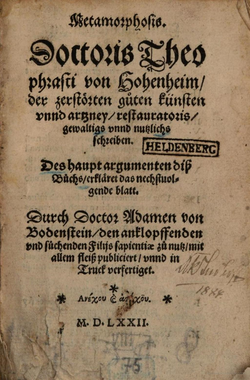 Metamorphosis.
Doctoris Theo
phrasti von Hohenheim/
der zerstörten gůten künsten
vnnd artzney / restauratoris/
gewaltigs vnnd nutzlichs
schreiben.
HELDENBERG
Des haupt argumenten diß
Bůchs / erkläret das nechstuol-
gende blatt.
Durch Doctor Adamen von
Bodenstein / den anklopffenden
vnd sůchenden Filijs sapientiæ zů nutz / mit
allem fleiß publiciert / vnnd in
Truck verfertiget.
M. D. LXXII.
75